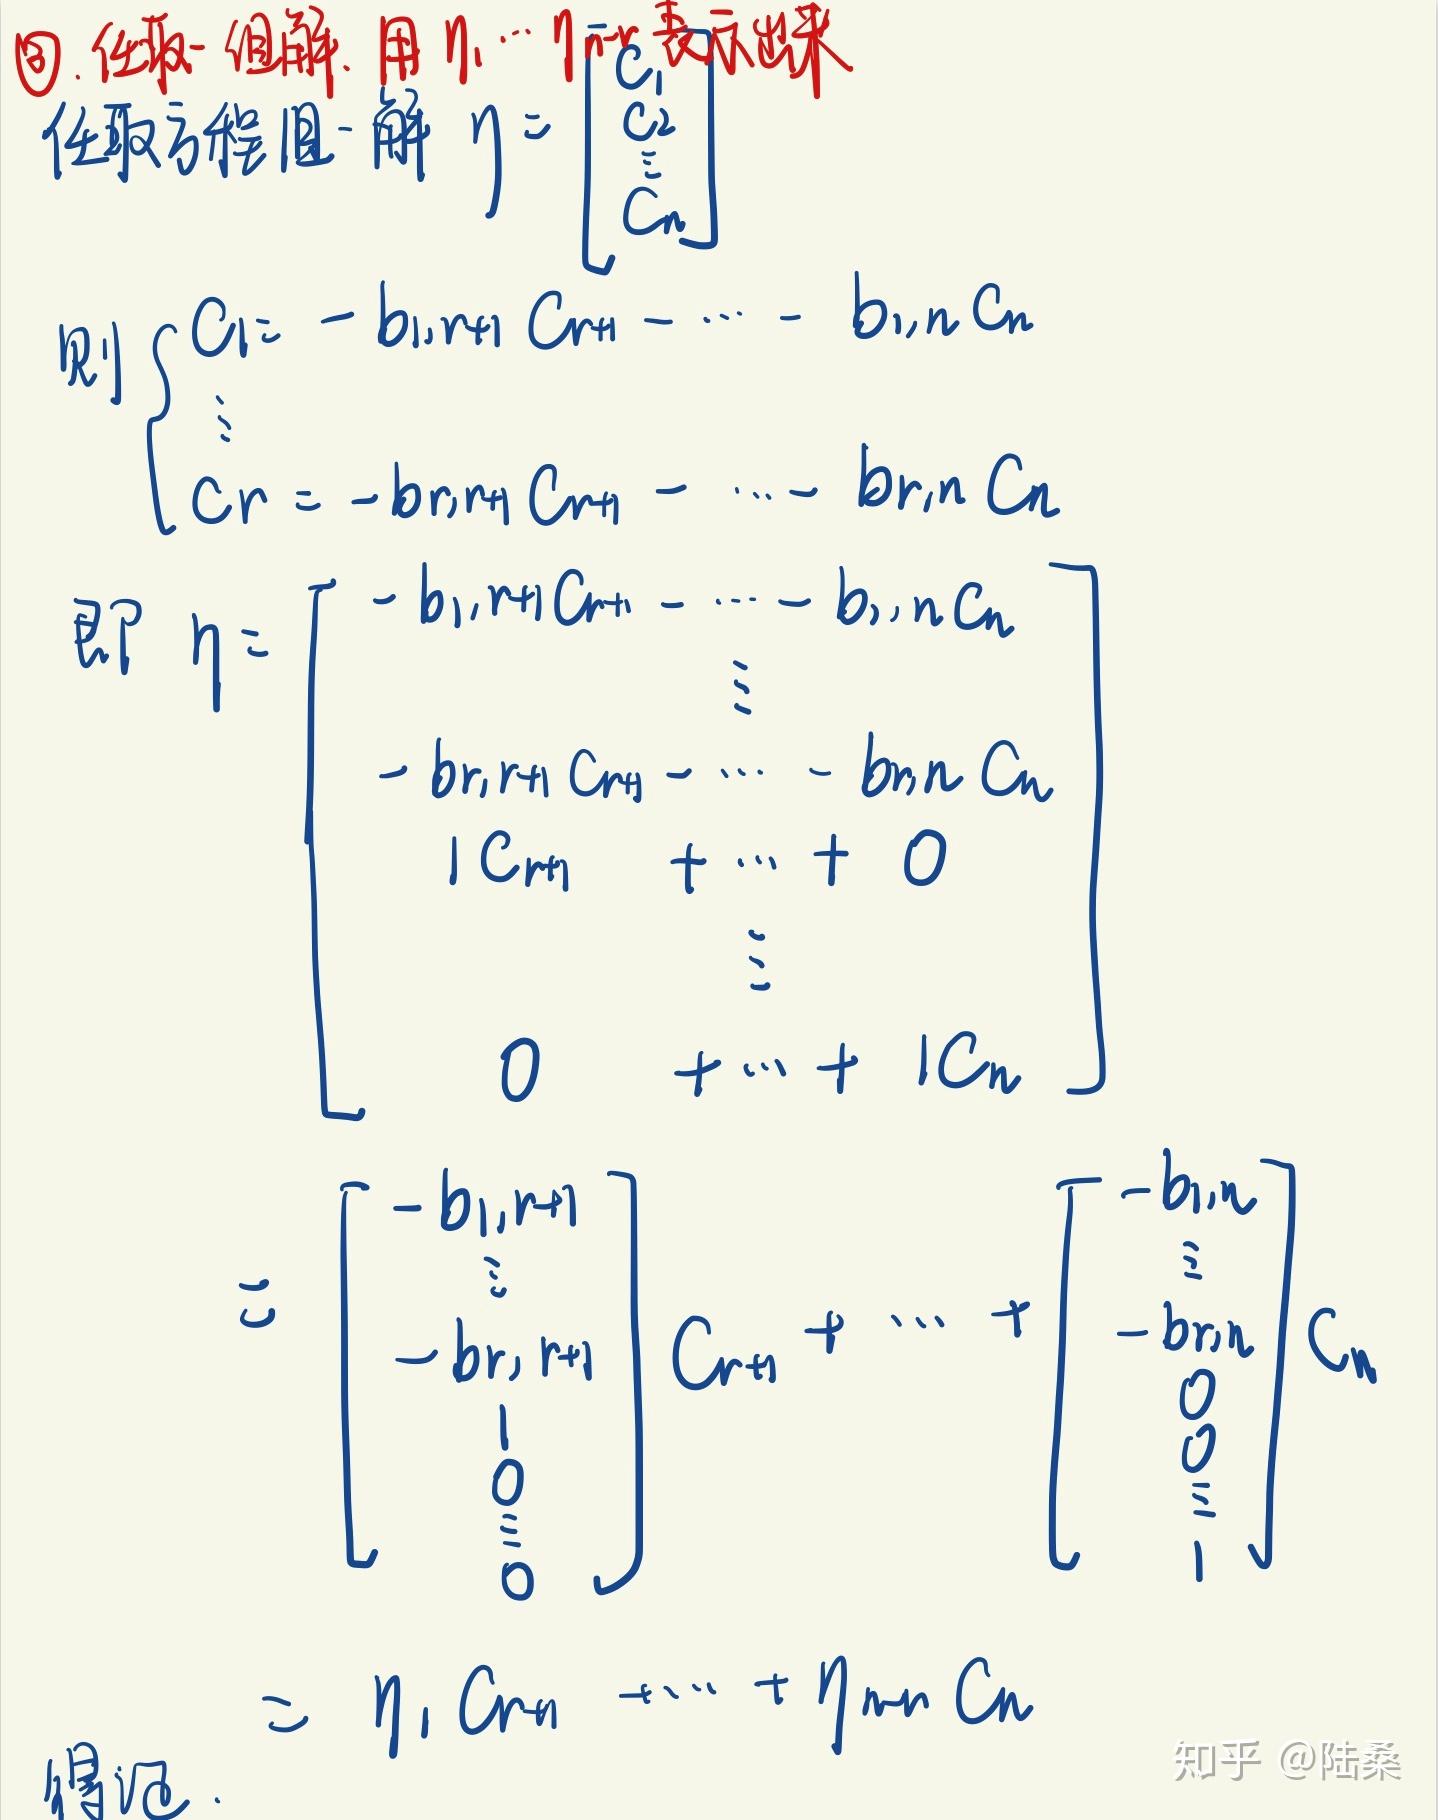 四.任取一组解.用 η₁ … ηn-r 表示出来
任取方程组一解 η = [C₁ C₂ ⋮ Cn]
则 { C₁ = - b₁,r+1 Cr+1 - … - b₁,n Cn
⋮
Cr = - br,r+1 Cr+1 - … - br,n Cn
即 η = [ - b₁,r+1 Cr+1 - … - b₁,n Cn
⋮
- br,r+1 Cr+1 - … - br,n Cn
1Cr+1 + … + 0
⋮
0 + … + 1Cn ]
= [ -b₁,r+1 ⋮ -br,r+1 1 0 ⋮ 0 ] Cr+1 + … + [ -b₁,n ⋮ -br,n 0 0 ⋮ 1 ] Cn
= η₁ Cr+1 + … + ηn-r Cn
得证.
知乎 @陆桑